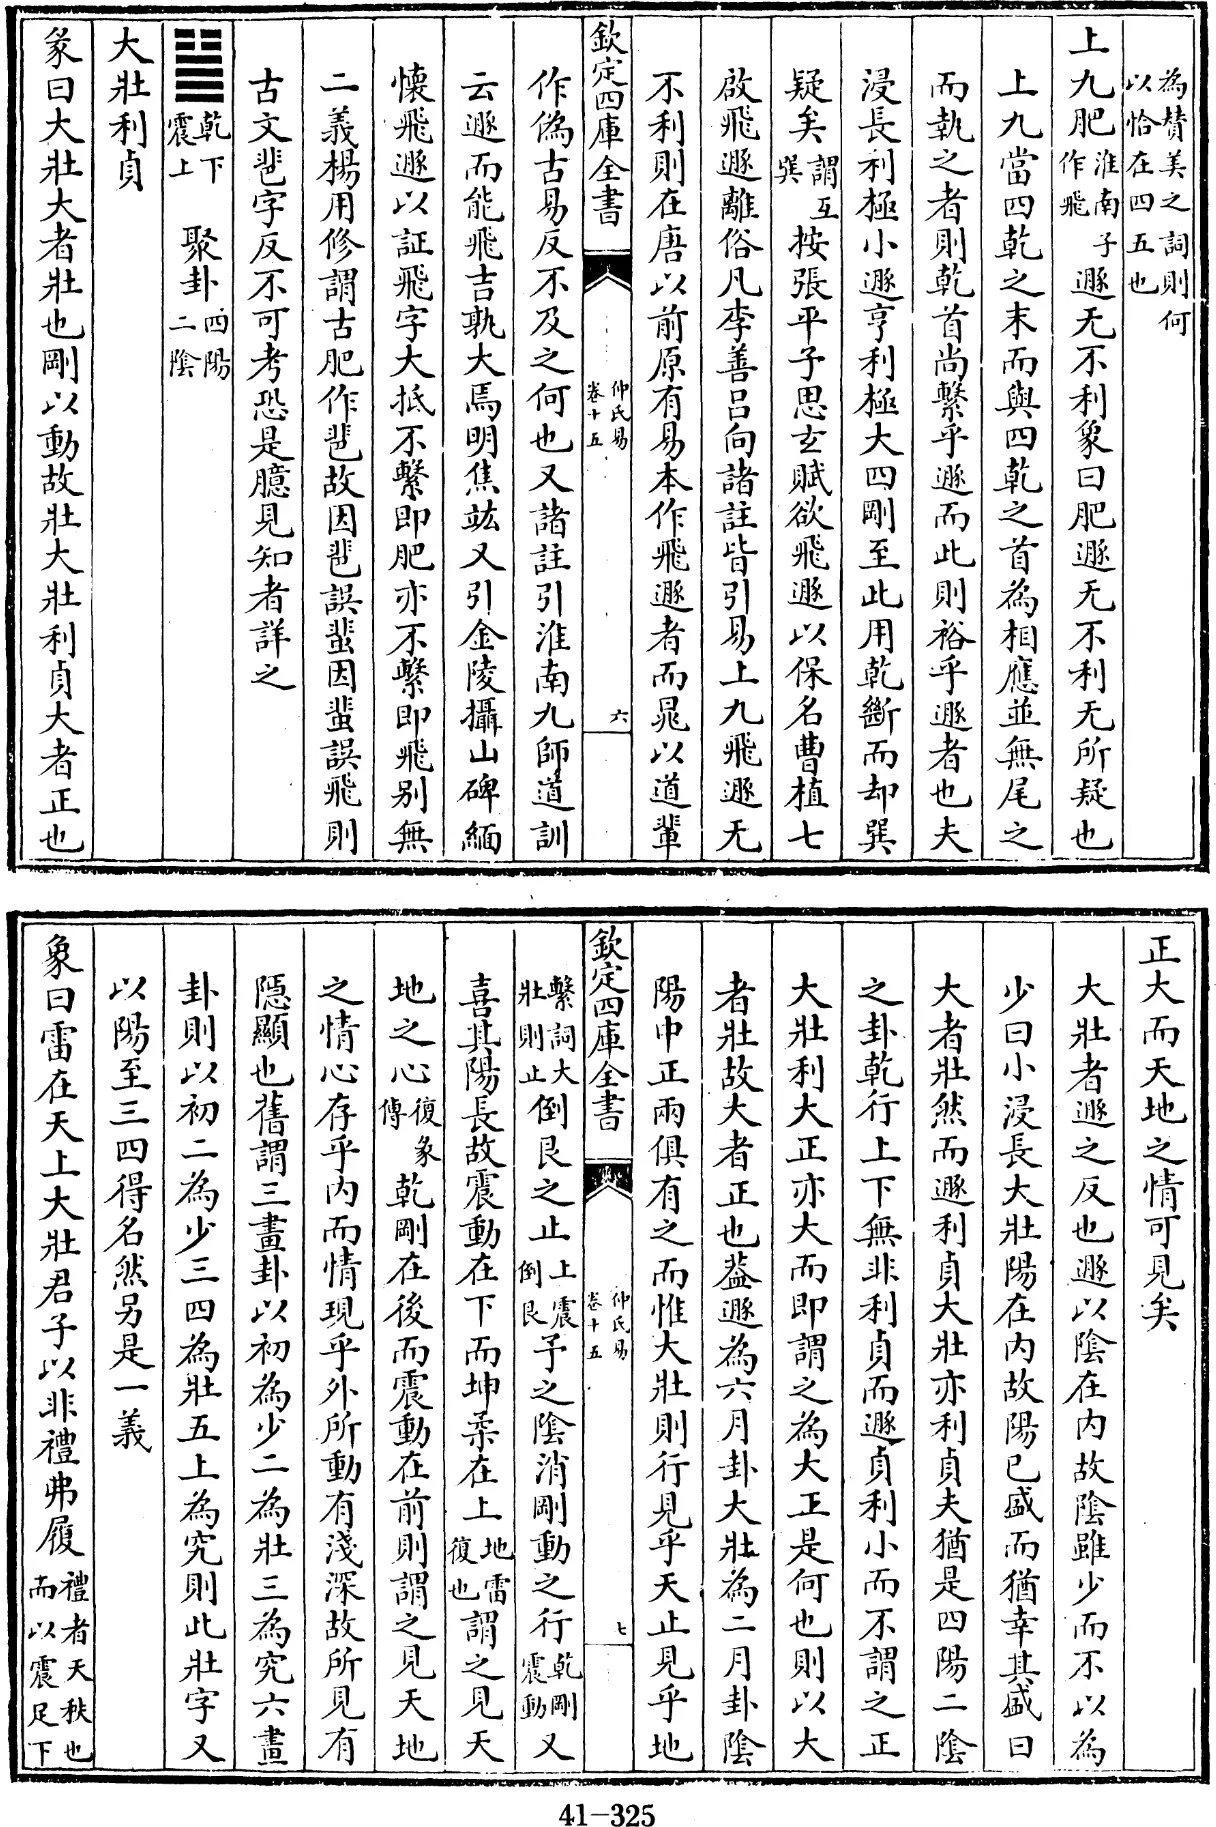 為賛美之詞則何
以恰在四五也
上九肥淮南子作飛遯无不利象曰肥遯无不利无所疑也
上九當四乾之末而與四乾之首為相應並無尾之
而執之者則乾首尚繫乎遯而此則裕乎遯者也夫
浸長利極小遯亨利極大四剛至此用乾斷而却巽
疑矣謂互巽按張平子思玄賦欲飛遯以保名曹植七
啟飛遯離俗凡李善呂向諸註皆引易上九飛遯无
不利則在唐以前原有易本作飛遯者而晁以道輩
欽定四庫全書
仲氏易
卷十五
六
作偽古易反不及之何也又諸註引淮南九師道訓
云遯而能飛吉孰大焉明焦竑又引金陵攝山碑緬
懷飛遯以証飛字大抵不繫即肥亦不繫即飛别無
二義楊用修謂古肥作𨐊故因𨐊誤蜚因蜚誤飛則
古文𨐊字反不可考恐是臆見知者詳之
䷡乾下震上 聚卦四陽二陰
大壯利貞
彖曰大壯大者壯也剛以動故壯大壯利貞大者正也
正大而天地之情可見矣
大壯者遯之反也遯以陰在内故陰雖少而不以為
少曰小浸長大壯陽在内故陽已盛而猶幸其盛曰
大者壯然而遯利貞大壯亦利貞夫猶是四陽二陰
之卦乾行上下無非利貞而遯貞利小而不謂之正
大壯利大正亦大而即謂之為大正是何也則以大
者壯故大者正也葢遯為六月卦大壯為二月卦陰
陽中正兩俱有之而惟大壯則行見乎天止見乎地
欽定四庫全書
仲氏易
卷十五
七
繫詞大壯則止倒艮之止上震倒艮予之陰消剛動之行乾剛震動又
喜其陽長故震動在下而坤柔在上地雷復也謂之見天
地之心復彖傳乾剛在後而震動在前則謂之見天地
之情心存乎内而情現乎外所動有淺深故所見有
隱顯也舊謂三畫卦以初為少二為壯三為究六畫
卦則以初二為少三四為壯五上為究則此壯字又
以陽至三四得名然另是一義
象曰雷在天上大壯君子以非禮弗履禮者天秩也而以震足下
41-325